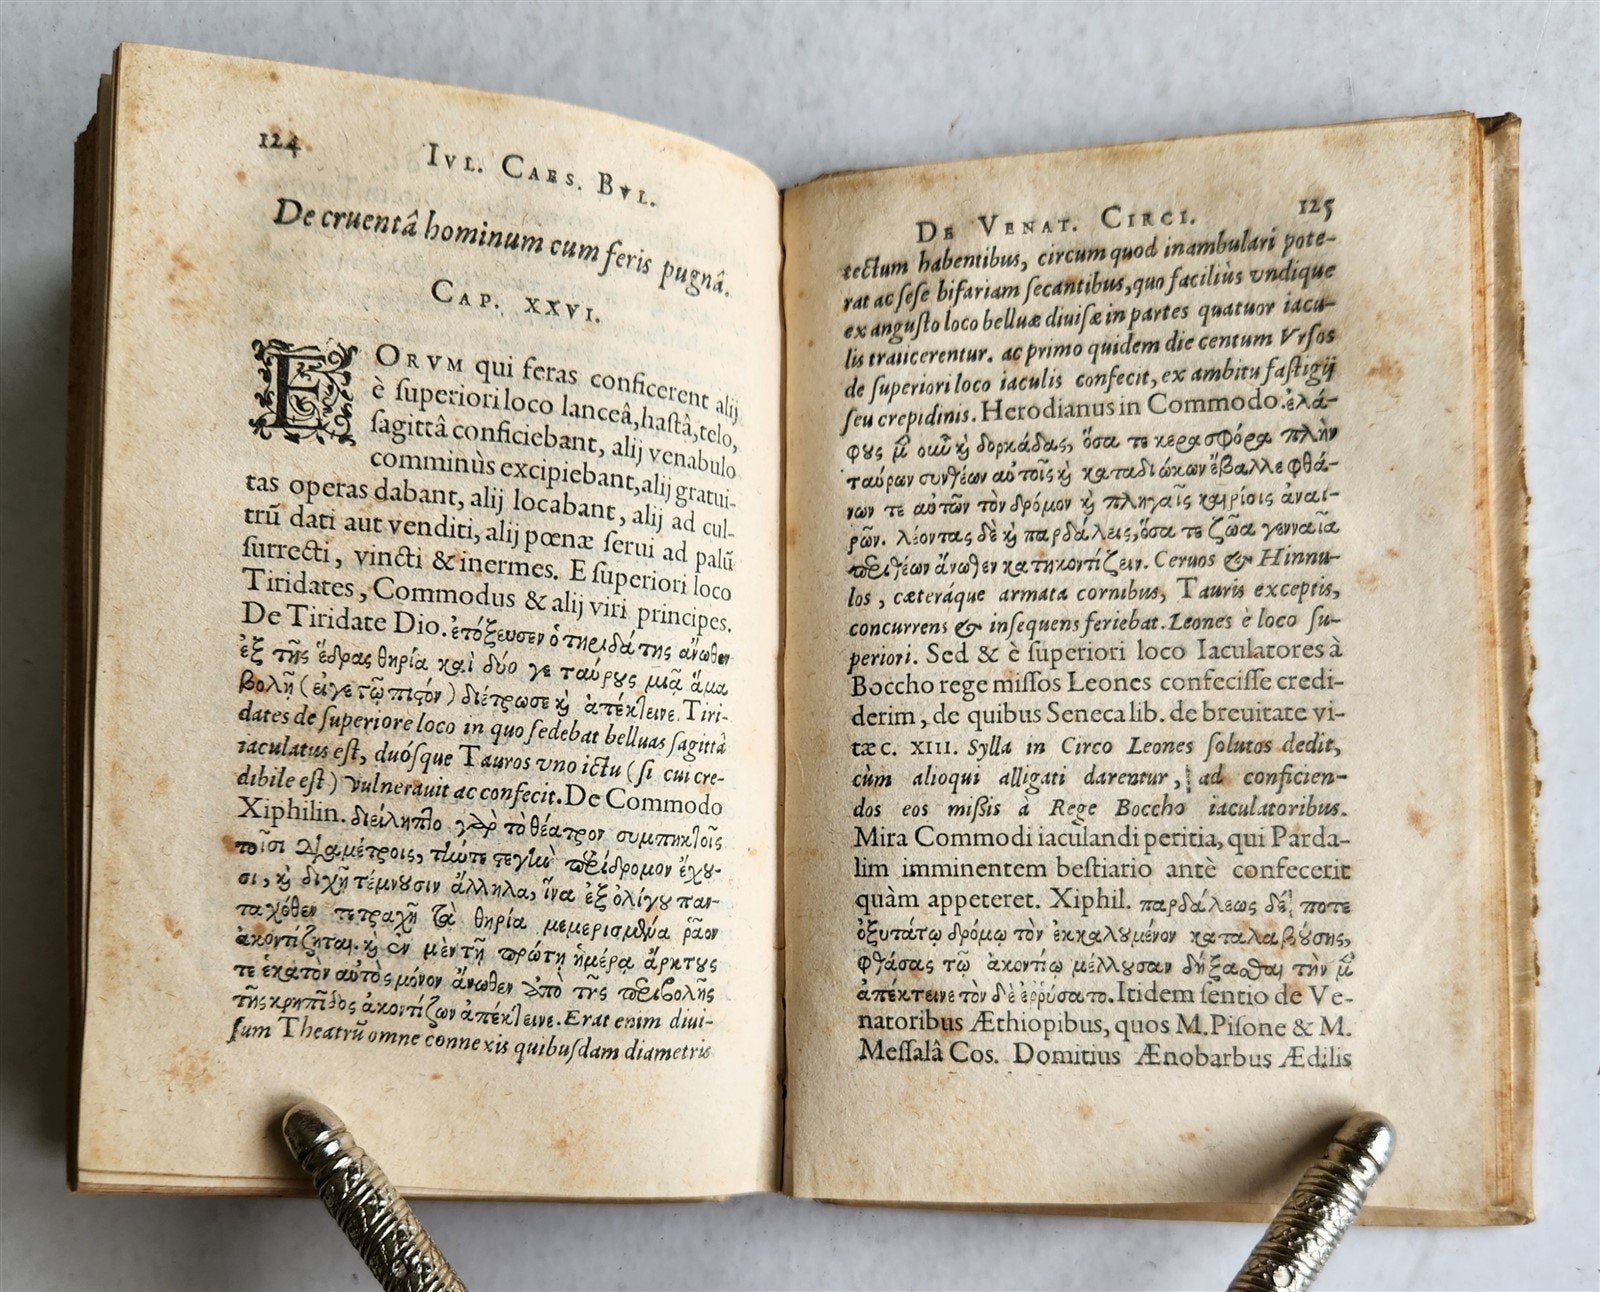 124
IVL. CAES. BVL.
De cruentâ hominum cum feris pugnâ.
CAP. XXVI.
EORVM qui feras conficerent alij
è ſuperiori loco lanceâ, haſtâ, telo,
ſagittâ conficiebant, alij venabulo
comminùs excipiebant, alij gratui-
tas operas dabant, alij locabant, alij ad cul-
trũ dati aut venditi, alij pœnæ ſerui ad palũ
ſurrecti, vincti & inermes. E ſuperiori loco
Tiridates, Commodus & alij viri principes.
De Tiridate Dio. ἐτόξευσεν ὁ τηριδάτης ἄνωθεν
ἐξ τῆς ἕδρας θηρία καὶ δύο γε ταύρȣς μιᾷ ἅμα
βολῇ (εἴγε τῷ πιϛόν) διέτρωσε ϗ ἀπέκλεινε. Tiri-
dates de ſuperiore loco in quo ſedebat belluas ſagittâ
iaculatus eſt, duóſque Tauros vno ictu (ſi cui cre-
dibile eſt) vulnerauit ac confecit. De Commodo
Xiphilin. διείληπτο γὰρ τὸ θέατρον συμπηκτοῖς
τοῖσι διαμέτροις, τήν τε τεγὴν περίδρομον ἔχȣ-
σι, ϗ διχῆ τέμνȣσιν ἄλληλα, ἵνα ἐξ ὀλίγȣ παν-
ταχόθεν τετραχῆ τὰ θηρία μεμερισμένα ῥᾷον
ἀκοντίζηται. ϗ ἐν μὲν τῇ πρώτῃ ἡμέρᾳ ἄρκτȣς
τε ἑκατὸν αὐτὸς μόνον ἄνωθεν ἀπὸ τῆς περιβολῆς
τῆς κρηπῖδος ἀκοντίζων ἀπέκλεινε. Erat enim diui-
ſum Theatrũ omne connexis quibuſdam diametris
DE VENAT. CIRCI. 125
tectum habentibus, circum quod inambulari pote-
rat ac ſeſe bifariam ſecantibus, quo faciliùs vndique
ex anguſto loco belluæ diuiſæ in partes quatuor iacu-
lis traiicerentur. ac primo quidem die centum Vrſos
de ſuperiori loco iaculis confecit, ex ambitu faſtigij
ſeu crepidinis. Herodianus in Commodo. ἐλά-
φȣς μ̃ οὖν ϗ δορκάδας, ὅσα τε κερασφόρα πλὴν
ταύρων συνθέων αὐτοῖς ϗ καταδιώκων ἔβαλλε φθά-
νων τε αὐτῶν τὸν δρόμον ϗ πληγαῖς καιρίοις ἀναι-
ρῶν. λέοντας δὲ ϗ παρδάλεις, ὅσα τε ζῶα γενναῖα
περιθέων ἄνωθεν κατηκοντίζειν. Ceruos & Hinnu-
los, cæteráque armata cornibus, Tauris exceptis,
concurrens & inſequens feriebat. Leones è loco ſu-
periori. Sed & è ſuperiori loco Iaculatores à
Boccho rege miſſos Leones confeciſſe credi-
derim, de quibus Seneca lib. de breuitate vi-
tæ c. XIII. Sylla in Circo Leones ſolutos dedit,
cùm alioqui alligati darentur, ad conficien-
dos eos miſſis à Rege Boccho iaculatoribus.
Mira Commodi iaculandi peritia, qui Parda-
lim imminentem beſtiario antè confecerit
quàm appeteret. Xiphil. παρδάλεως δέ ποτε
ὀξυτάτῳ δρόμῳ τὸν ἐκκαλȣμένον καταλαβȣ́σης,
φθάσας τῷ ἀκοντίῳ μέλλȣσαν δήξασθαι τὴν μ̃
ἀπέκτεινε τὸν δὲ ἐῤῥύσατο. Itidem ſentio de Ve-
natoribus Æthiopibus, quos M. Piſone & M.
Meſſalâ Cos. Domitius Ænobarbus Ædilis